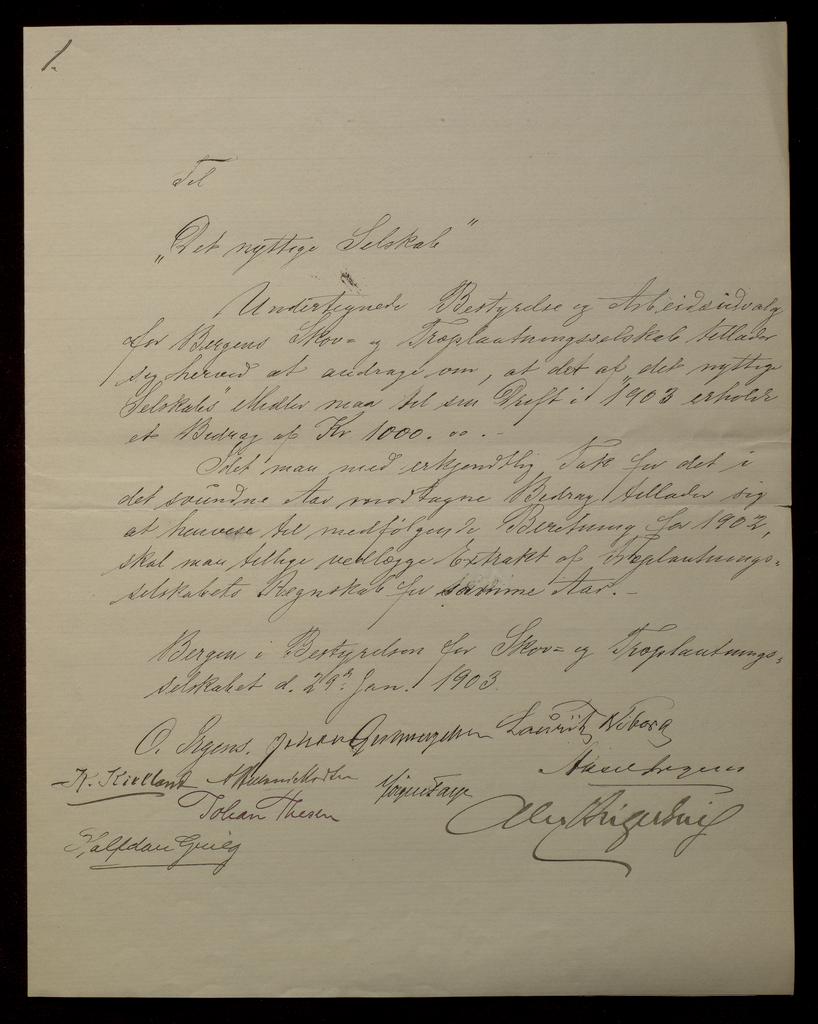 1.
Til
„Det nyttige Selskab"
Undertegnede Bestyrelse og Arbeidsudvalg
for Bergens Skov= og Træplantningsselskab tillader
sig herved at andrage om, at det af „det nyttige
Selskabs" Midler maa til sin Drift i 1903 erholde
et Bidrag af Kr 1000.00.-
Idet man med erkjendtlig Tak for det i
det svundne Aar modtagne Bidrag tillader sig
at henvise til medfølgende Beretning for 1902,
skal man tillige vedlægge Extrakt af Træplantnings=
selskabets Regnskab for samme Aar.-
Bergen i Bestyrelsen for Skov= og Træplantnings=
selskabet d. 29de Jan. 1903.
O. Irgens. Johan Lauritz Niborg
K. Kielland Mørgen Faye
Johan Thesen
Halfdan Grieg